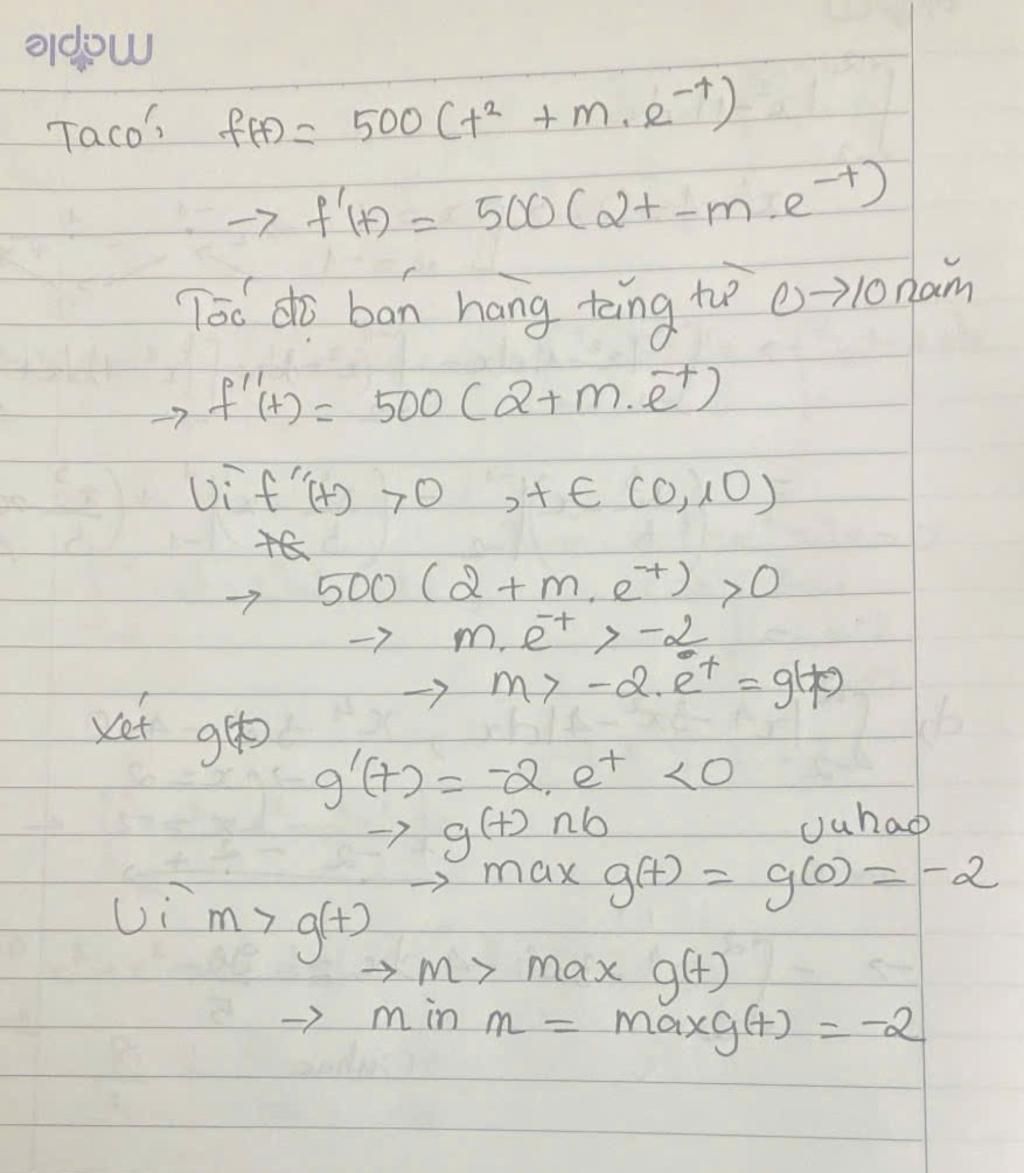 maple
Taco': f(t) = 500 (t² + m. e⁻ᵗ)
→ f'(t) = 500 (2t - m. e⁻ᵗ)
Tốc độ bán hàng tăng từ 0 → 10 năm
→ f''(t) = 500 (2 + m. e⁻ᵗ)
Vì f''(t) > 0 , t ∈ (0, 10)
→ 500 (2 + m. e⁻ᵗ) > 0
→ m. e⁻ᵗ > -2
→ m > -2. eᵗ = g(t)
Xét g(t)
g'(t) = -2. eᵗ < 0
→ g(t) nb
→ max g(t) = g(0) = -2
Vì m > g(t)
→ m > max g(t)
→ min m = max g(t) = -2